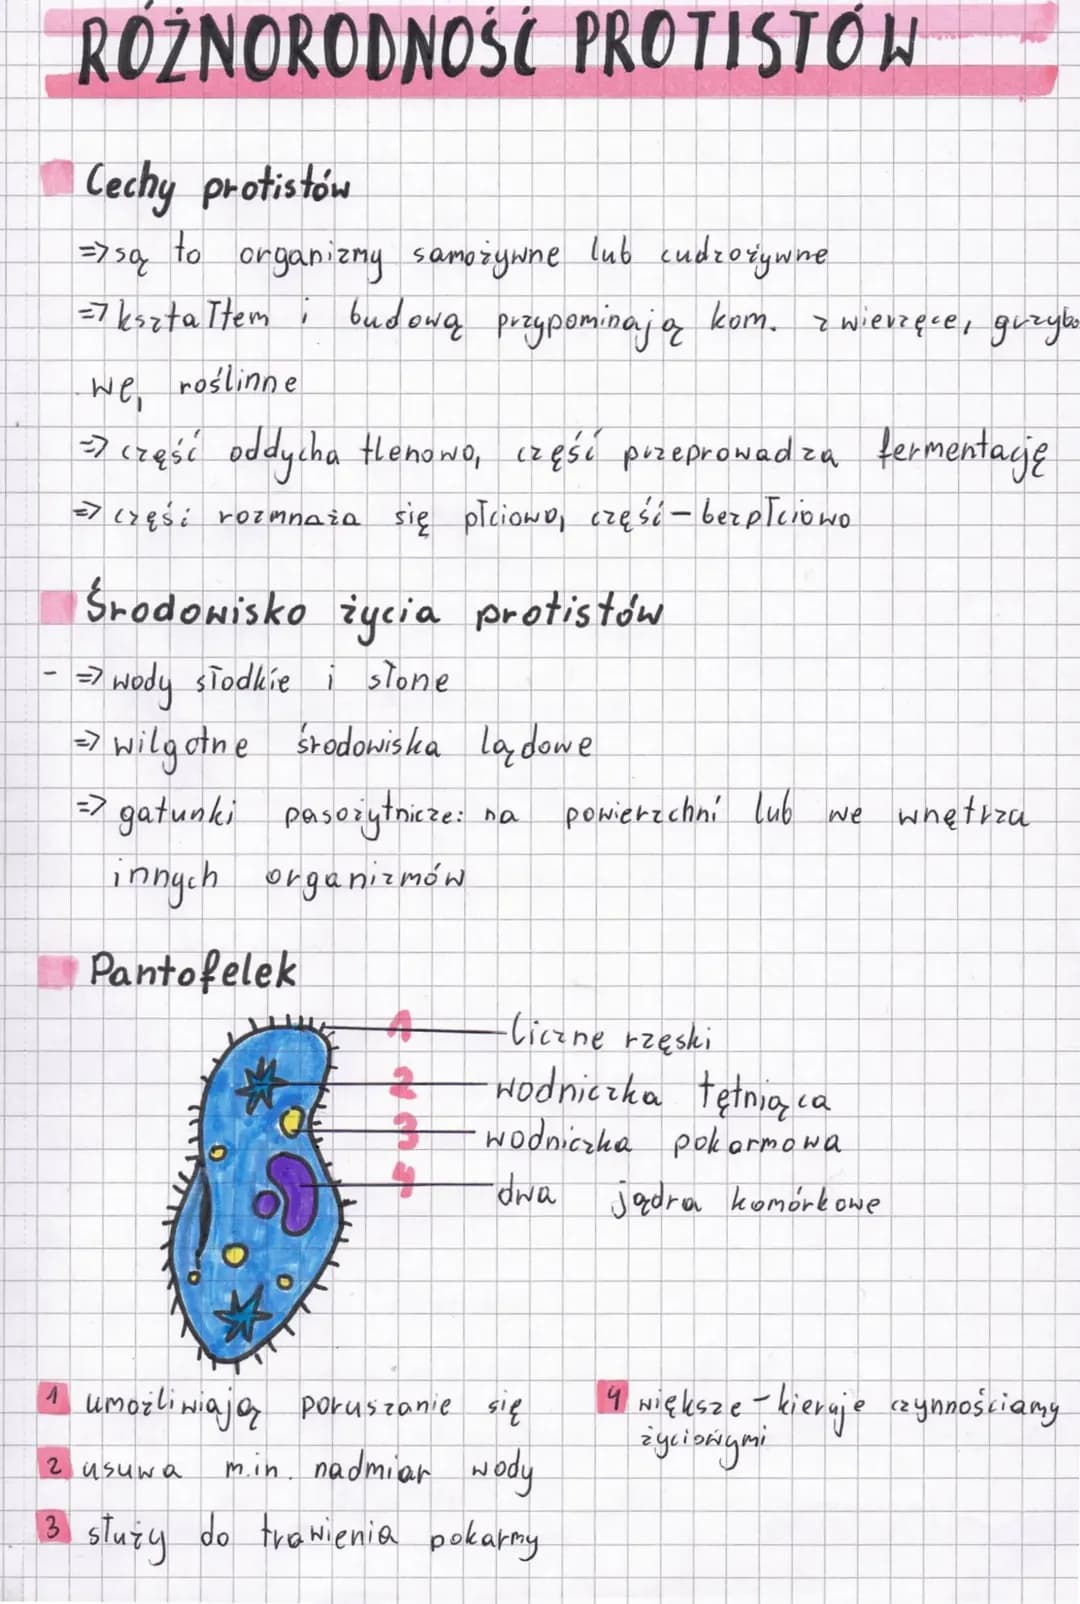 RÓŻNORODNOŚĆ PROTISTÓW
Cechy protistów
=> są to organizmy samożywne lub cudzożywne
=> kształtem i budową przypominają kom. zwierzęce, grzybo
we, roślinne
=> część oddycha tlenowo, część przeprowadza fermentację
=> część rozmnaża się płciowo, część - bezpłciowo
Środowisko życia protistów
- => wody słodkie i słone
=> wilgotne środowiska lądowe
=> gatunki pasożytnicze: na powierzchni lub we wnętrza
innych organizmów
Pantofelek
1 liczne rzęski
2 wodniczka tętniąca
3 wodniczka pokarmowa
4 dwa jądra komórkowe
1 umożliwiają poruszanie się
2 usuwa m.in. nadmiar wody
3 służy do trawienia pokarmy
4 większe - kieruje czynnościamy
życiowymi